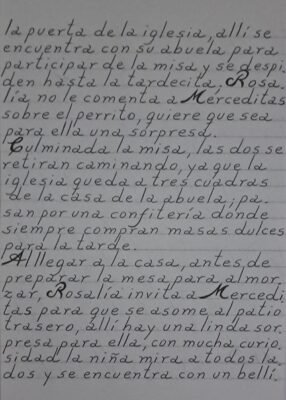 la puerta de la iglesia, allí se
encuentra con su abuela para
participar de la misa y se despi
den hasta la tardecita, Rosa-
lía no le comenta a Merceditas
sobre el perrito, quiere que sea
para ella una sorpresa.
Culminada la misa, las dos se
retiran caminando, ya que la
iglesia queda a tres cuadras
de la casa de la abuela, pa-
san por una confitería donde
siempre compran masas dulces
para la tarde.
Al llegar a la casa, antes de
preparar la mesa para almor-
zar, Rosalía invita a Mercedi-
tas para que se asome al patio
trasero, allí hay una linda sor-
presa para ella, con mucha curio-
sidad la niña mira a todos la-
dos y se encuentra con un bellí-